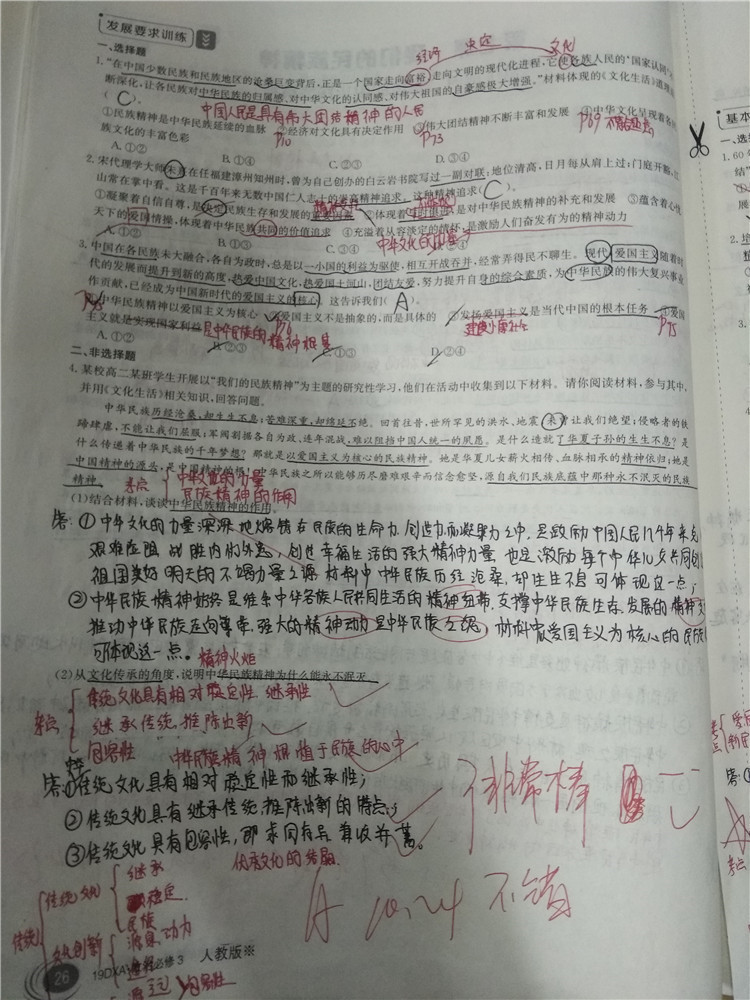 发展要求训练
一、选择题
经济 决定 文化
1.“在中国少数民族和民族地区的沧桑巨变背后,正是一个国家走向富裕、走向文明的现代化进程,它使各族人民的‘国家认同’
断深化,让各民族对中华民族的归属感、对中华文化的认同感、对伟大祖国的自豪感极大增强。”材料体现的《文化生活》道理
( C ).
中国人民是具有伟大团结精神的人民
①民族精神是中华民族延续的血脉 ②经济对文化具有决定作用 ③伟大团结精神不断丰富和发展 ④中华文化呈现着各
P10 P73 P69
族文化的丰富色彩
A.①② B.①④ C.②③ D.③④
2.宋代理学大师朱熹在任福建漳州知州时,曾为自己创办的白云岩书院写过一副对联:地位清高,日月每从肩上过;门庭开豁,江
山常在掌中看。这是千百年来无数中国仁人志士的崇高精神追求。这种精神追求( C )。
①凝聚着自信自尊,是决定民族生存和发展的重要因素 ②体现着 是对中华民族的精神的补充和发展 ③蕴含着心忧
天下的爱国情操,体现着中华民族共同的价值追求 ④充溢着从容淡定的情怀,是激励人们奋发有为的精神动力
A.①② B.①③ C.③④ D.②④
中华文化的力量
3.中国在各民族未大融合、各自为政时,总是以一小国的利益为驱使,相互开战吞并,经常弄得民不聊生。现代爱国主义随着时
代的发展而提升到新的高度,热爱中国文化,热爱国土河山,团结友爱,努力提升自身的综合素质,为中华民族的伟大复兴事业
作贡献,已经成为中国新时代的爱国主义的核心。这告诉我们( A )。
①中华民族精神以爱国主义为核心 ②爱国主义不是抽象的,而是具体的 ③发扬爱国主义是当代中国的根本任务 ④爱国
主义就是实现国家利益 是中华民族的精神 P76 P75
A.①② B.②③ C.①③ D.②④
二、非选择题
4.某校高二某班学生开展以“我们的民族精神”为主题的研究性学习,他们在活动中收集到以下材料。请你阅读材料,参与其中,
并用《文化生活》相关知识,回答问题。
中华民族历经沧桑,却生生不息;苦难深重,却绵延不绝。回首往昔,世所罕见的洪水、地震,未曾让我们绝望;侵略者的铁
蹄肆虐,不能让我们屈服;军阀割据各自为政、连年混战,难以阻挡中国人统一的夙愿。是什么造就了华夏子孙的生生不息?是
什么传递着中华民族的千年梦想?那就是以爱国主义为核心的民族精神。她是华夏儿女薪火相传、血脉相承的精神依归;她是
中国精神的源头,是中国精神的根。中华民族之所以能够历尽磨难艰辛而信念愈坚,源自我们民族底蕴中那种永不泯灭的民族
精神。
考点 中华文化的力量
民族精神的作用
(1)结合材料,谈谈中华民族精神的作用。
答:①中华文化的力量深深地熔铸在民族的生命力、创造力和凝聚力之中,是激励中国人民几千年来克
艰难险阻、战胜内忧外患、创造幸福生活的强大精神力量,也是激励每个中华儿女共同创
祖国美好明天的不竭力量之源.材料中中华民族历经沧桑,却生生不息可体现这一点;
②中华民族精神始终是维系中华各族人民共同生活的精神纽带、支撑中华民族生存、发展的精神支
推动中华民族走向繁荣、强大的精神动力,是中华民族之魂,材料中爱国主义为核心的民族
可体现这一点。 精神火炬
(2)从文化传承的角度,说明中华民族精神为什么能永不泯灭。
考点 传统文化具有相对稳定性、继承性
继承传统、推陈出新
包容性 中华民族精神根植于民族的心中
答:①传统文化具有相对稳定性和继承性;
②传统文化具有继承传统、推陈出新的特点;
③传统文化具有包容性,即求同存异、兼收并蓄。
优秀文化的结晶
非常棒
A 10.24 不错
传统 传统文化 继承
稳定
民族
文化创新 源泉、动力
包容性
26 必修3 人教版※
基本
一、选
1.60
结”